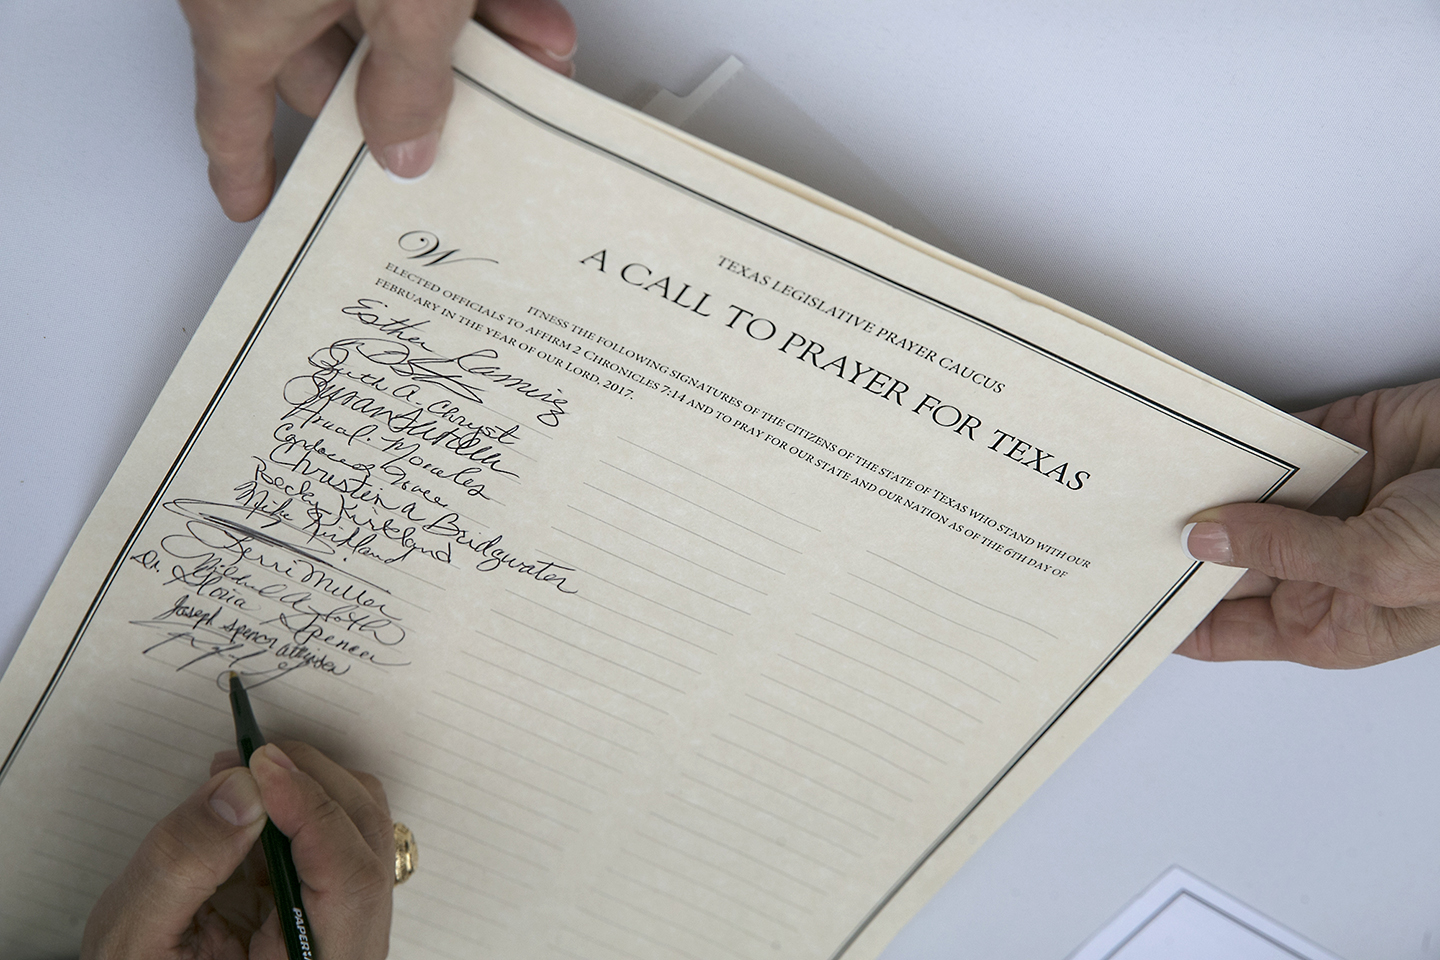 TEXAS LEGISLATIVE PRAYER CAUCUS
A CALL TO PRAYER FOR TEXAS
WITNESS THE FOLLOWING SIGNATURES OF THE CITIZENS OF THE STATE OF TEXAS WHO STAND WITH OUR
ELECTED OFFICIALS TO AFFIRM 2 CHRONICLES 7:14 AND TO PRAY FOR OUR STATE AND OUR NATION AS OF THE 6TH DAY OF
FEBRUARY IN THE YEAR OF OUR LORD, 2017.
Esther Ramirez
Ruth A Chryst
Morales
Christina Bridgwater
Becky Kirkland
Mike Kirkland
Terri Miller
Mildred A
Dr. Gloria Spencer
Joseph Spencer Atkinson
PAPER